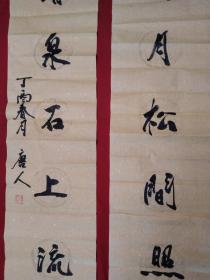 月松間照
泉石上流
丁丙春月 唐人